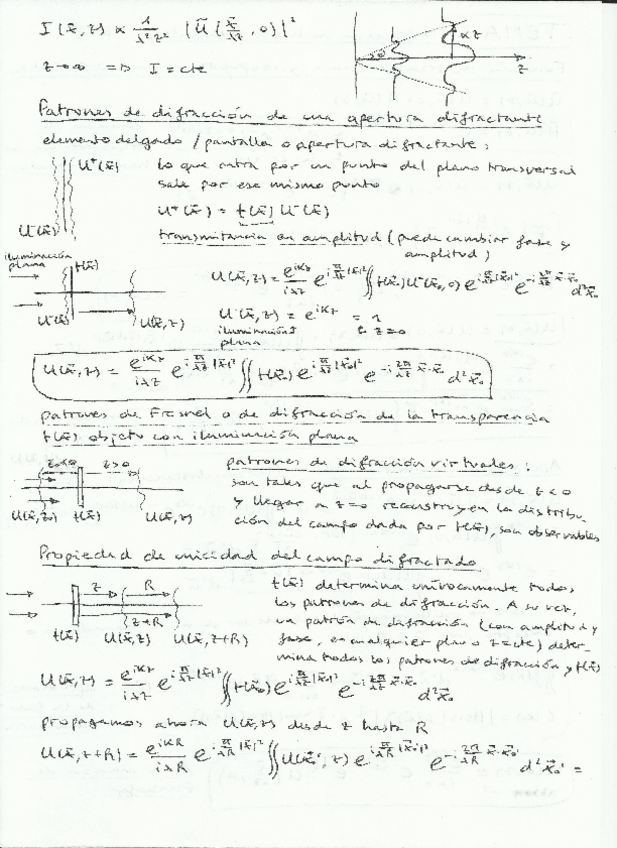 I(x⃗, z) ∝ 1/λ²z² |Ũ(x⃗/λz, 0)|²
αz
z
z→∞ ⇒ I = cte
Patrones de difracción de una apertura difractante
elemento delgado / pantalla o apertura difractante:
U⁺(x⃗)
lo que entra por un punto del plano transversal
sale por ese mismo punto
U⁻(x⃗)
U⁺(x⃗) = t(x⃗) U⁻(x⃗)
transmitancia en amplitud (puede cambiar fase y
amplitud)
iluminación
plana
t(x⃗)
U(x⃗,z) = e^{iKz}/iλz e^{i π/λz |x⃗|²} ∬ t(x⃗₀) U⁻(x⃗₀,0) e^{i π/λz |x⃗₀|²} e^{-i 2π/λz x⃗·x⃗₀} d²x⃗₀
U⁻(x⃗)
U(x⃗,z)
U⁻(x⃗,z) = e^{iKz} = 1
iluminación
plana
z=0
U(x⃗,z) = e^{iKz}/iλz e^{i π/λz |x⃗|²} ∬ t(x⃗₀) e^{i π/λz |x⃗₀|²} e^{-i 2π/λz x⃗·x⃗₀} d²x⃗₀
patrones de Fresnel o de difracción de la transparencia
t(x⃗) objeto con iluminación plana
z₀<0
z>0
U(x⃗,z₀) t(x⃗) U(x⃗,z)
patrones de difracción virtuales:
son tales que al propagarse desde z<0
y llegar a z=0 reconstruyen la distribu-
ción del campo dada por t(x⃗), son observables
Propiedad de unicidad del campo difractado
z R
z+R
t(x⃗) U(x⃗,z) U(x⃗,z+R)
t(x⃗) determina unívocamente todos
los patrones de difracción. A su vez,
un patrón de difracción (con amplitud y
fase, en cualquier plano z=cte) deter-
mina todos los patrones de difracción y t(x⃗)
U(x⃗,z) = e^{iKz}/iλz e^{i π/λz |x⃗|²} ∬ t(x⃗₀) e^{i π/λz |x⃗₀|²} e^{-i 2π/λz x⃗·x⃗₀} d²x⃗₀
propagamos ahora U(x⃗,z) desde z hasta R
U(x⃗,z+R) = e^{iKR}/iλR e^{i π/λR |x⃗|²} ∬ U(x⃗₀',z) e^{i π/λR |x⃗₀'|²} e^{-i 2π/λR x⃗·x⃗₀'} d²x⃗₀' =